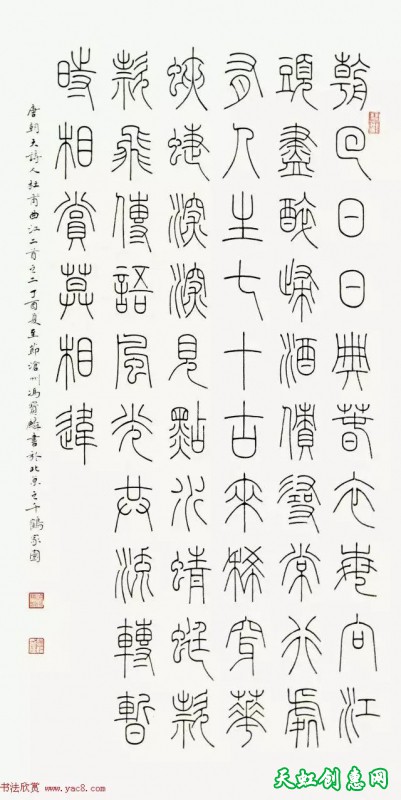 朝回日日典春衣每向江
頭盡醉歸酒債尋常行處
有人生七十古來稀穿華
蛺蝶深深見點水蜻蜓款
款飛傳語風光共流轉暫
時相賞莫相違
唐朝大詩人杜甫曲江二首之二丁酉夏至節滄州馮寶麟書於北京之千鶴家園
书法欣赏 www.yac8.com
天虹创意网